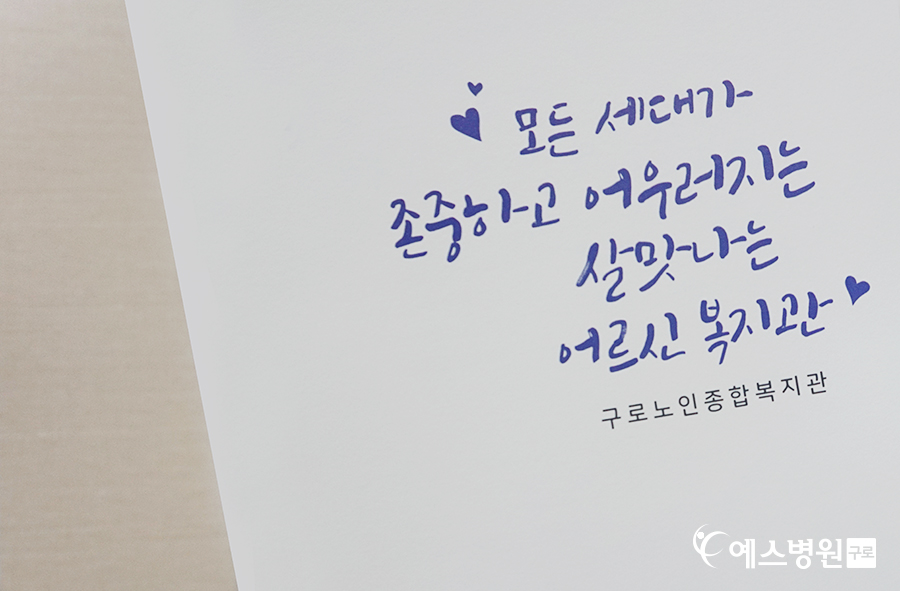 모든 세대가
존중하고 어우러지는
살맛나는
어르신 복지관
구로노인종합복지관
예스병원 구로